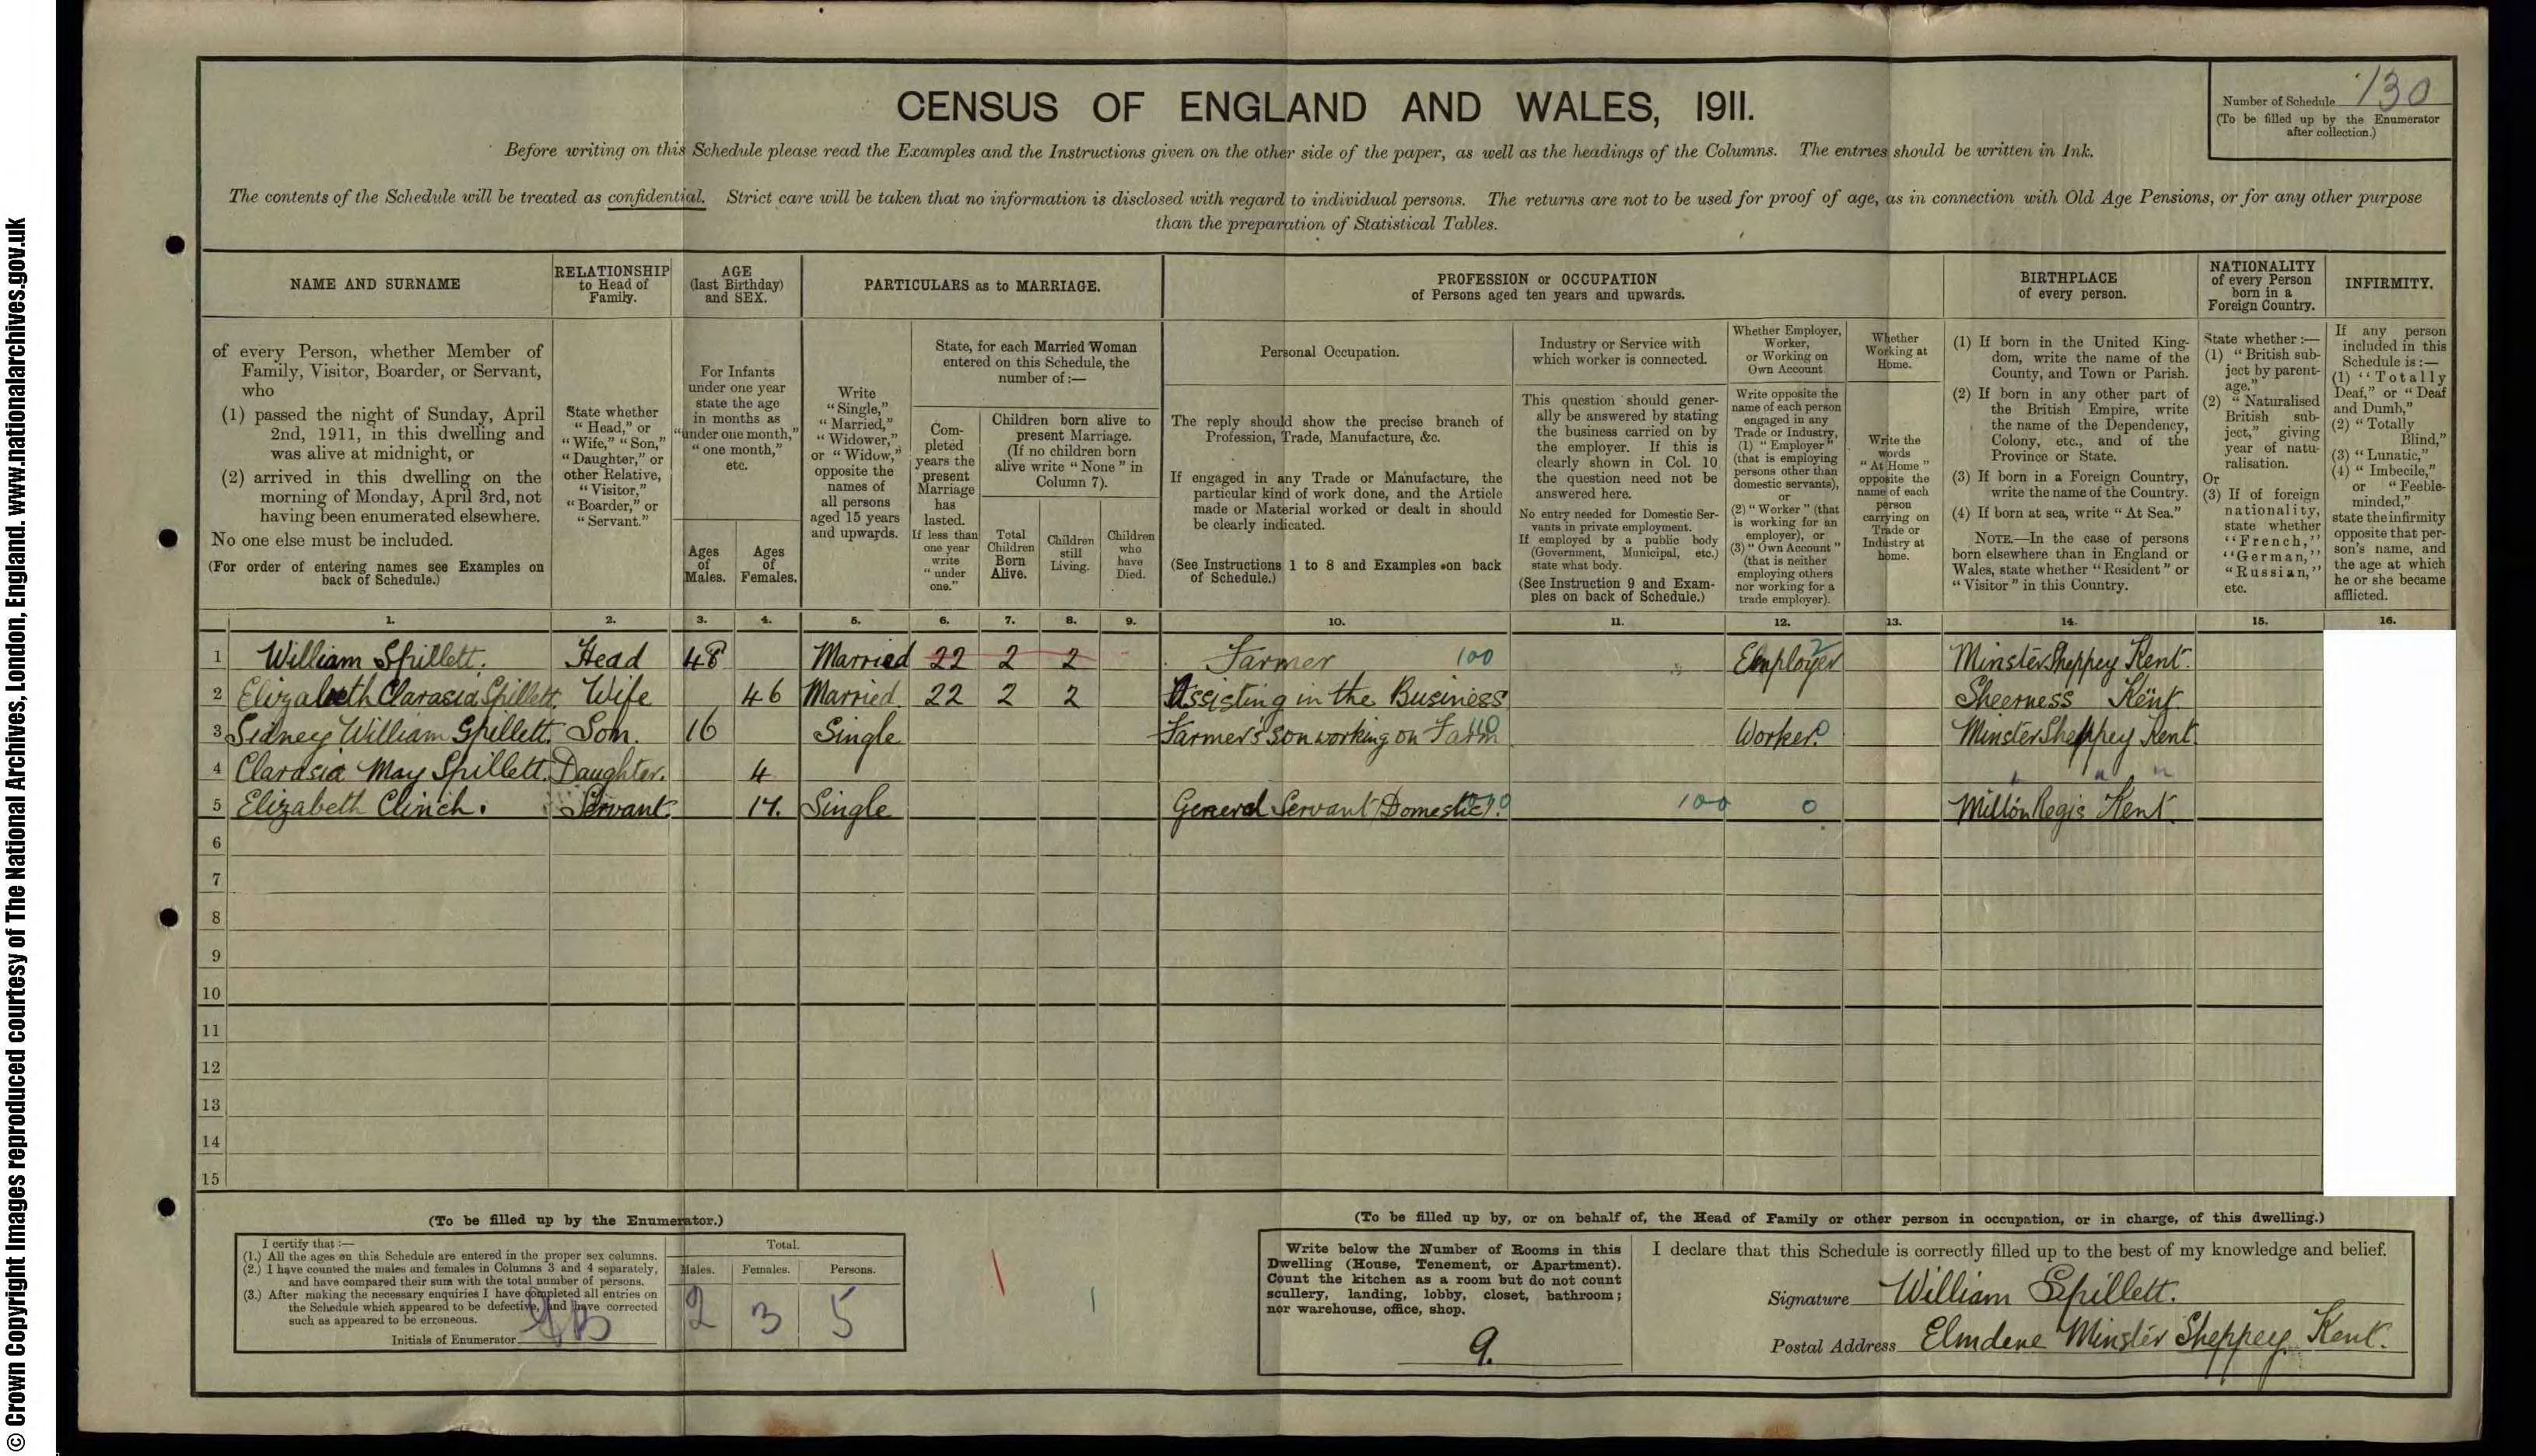 © Crown Copyright Images reproduced courtesy of The National Archives, London, England. www.nationalarchives.gov.uk
CENSUS OF ENGLAND AND WALES, 1911.
Number of Schedule 130
(To be filled up by the Enumerator
after collection.)
Before writing on this Schedule please read the Examples and the Instructions given on the other side of the paper, as well as the headings of the Columns. The entries should be written in Ink.
The contents of the Schedule will be treated as confidential. Strict care will be taken that no information is disclosed with regard to individual persons. The returns are not to be used for proof of age, as in connection with Old Age Pensions, or for any other purpose
than the preparation of Statistical Tables.
NAME AND SURNAME
of every Person, whether Member of
Family, Visitor, Boarder, or Servant,
who
(1) passed the night of Sunday, April
2nd, 1911, in this dwelling and
was alive at midnight, or
(2) arrived in this dwelling on the
morning of Monday, April 3rd, not
having been enumerated elsewhere.
No one else must be included.
(For order of entering names see Examples on
back of Schedule.)
RELATIONSHIP
to Head of
Family.
State whether
"Head," or
"Wife," "Son,"
"Daughter," or
other Relative,
"Visitor,"
"Boarder," or
"Servant."
AGE
(last Birthday)
and SEX.
For Infants
under one year
state the age
in months as
"under one month,"
"one month,"
etc.
Ages
of
Males.
Ages
of
Females.
PARTICULARS as to MARRIAGE.
Write
"Single,"
"Married,"
"Widower,"
or "Widow,"
opposite the
names of
all persons
aged 15 years
and upwards.
State, for each Married Woman
entered on this Schedule, the
number of:—
Com-
pleted
years the
present
Marriage
has
lasted.
If less than
one year
write
"under
one."
Children born alive to
present Marriage.
(If no children born
alive write "None" in
Column 7).
Total
Children
Born
Alive.
Children
still
Living.
Children
who
have
Died.
PROFESSION or OCCUPATION
of Persons aged ten years and upwards.
Personal Occupation.
The reply should show the precise branch of
Profession, Trade, Manufacture, &c.
If engaged in any Trade or Manufacture, the
particular kind of work done, and the Article
made or Material worked or dealt in should
be clearly indicated.
(See Instructions 1 to 8 and Examples on back
of Schedule.)
Industry or Service with
which worker is connected.
This question should gener-
ally be answered by stating
the business carried on by
the employer. If this is
clearly shown in Col. 10
the question need not be
answered here.
No entry needed for Domestic Ser-
vants in private employment.
If employed by a public body
(Government, Municipal, etc.)
state what body.
(See Instruction 9 and Exam-
ples on back of Schedule.)
Whether Employer,
Worker,
or Working on
Own Account
Write opposite the
name of each person
engaged in any
Trade or Industry,
(1) "Employer"
(that is employing
persons other than
domestic servants),
or
(2) "Worker" (that
is working for an
employer), or
(3) "Own Account"
(that is neither
employing others
nor working for a
trade employer).
Whether
Working at
Home.
Write the
words
"At Home"
opposite the
name of each
person
carrying on
Trade or
Industry at
home.
BIRTHPLACE
of every person.
(1) If born in the United King-
dom, write the name of the
County, and Town or Parish.
(2) If born in any other part of
the British Empire, write
the name of the Dependency,
Colony, etc., and of the
Province or State.
(3) If born in a Foreign Country,
write the name of the Country.
(4) If born at sea, write "At Sea."
NOTE.—In the case of persons
born elsewhere than in England or
Wales, state whether "Resident" or
"Visitor" in this Country.
NATIONALITY
of every Person
born in a
Foreign Country.
State whether:—
(1) "British sub-
ject by parent-
age."
(2) "Naturalised
British sub-
ject," giving
year of natu-
ralisation.
Or
(3) If of foreign
nationality,
state whether
"French,"
"German,"
"Russian,"
etc.
INFIRMITY.
If any person
included in this
Schedule is:—
(1) "Totally
Deaf," or "Deaf
and Dumb,"
(2) "Totally
Blind,"
(3) "Lunatic,"
(4) "Imbecile,"
or "Feeble-
minded,"
state the infirmity
opposite that per-
son's name, and
the age at which
he or she became
afflicted.
1. 2. 3. 4. 5. 6. 7. 8. 9. 10. 11. 12. 13. 14. 15. 16.
1 William Spillett. Head 48 Married 22 2 2 Farmer 100 Employer 2 Minster Sheppey Kent.
2 Elizabeth Clarasia Spillett. Wife 46 Married 22 2 2 Assisting in the Business Sheerness Kent.
3 Sidney William Spillett. Son. 16 Single Farmer's son working on Farm 110 Worker. 0 Minster Sheppey Kent.
4 Clarasia May Spillett. Daughter. 4 " " "
5 Elizabeth Clinch. Servant 17. Single General Servant (Domestic). 100 0 Milton Regis Kent.
6
7
8
9
10
11
12
13
14
15
(To be filled up by the Enumerator.)
I certify that:—
(1.) All the ages on this Schedule are entered in the proper sex columns.
(2.) I have counted the males and females in Columns 3 and 4 separately,
and have compared their sum with the total number of persons.
(3.) After making the necessary enquiries I have completed all entries on
the Schedule which appeared to be defective, and have corrected
such as appeared to be erroneous.
Initials of Enumerator
Total.
Males. Females. Persons.
2 3 5
(To be filled up by, or on behalf of, the Head of Family or other person in occupation, or in charge, of this dwelling.)
Write below the Number of Rooms in this
Dwelling (House, Tenement, or Apartment).
Count the kitchen as a room but do not count
scullery, landing, lobby, closet, bathroom;
nor warehouse, office, shop.
9.
I declare that this Schedule is correctly filled up to the best of my knowledge and belief.
Signature William Spillett.
Postal Address Elmdene Minster Sheppey Kent.